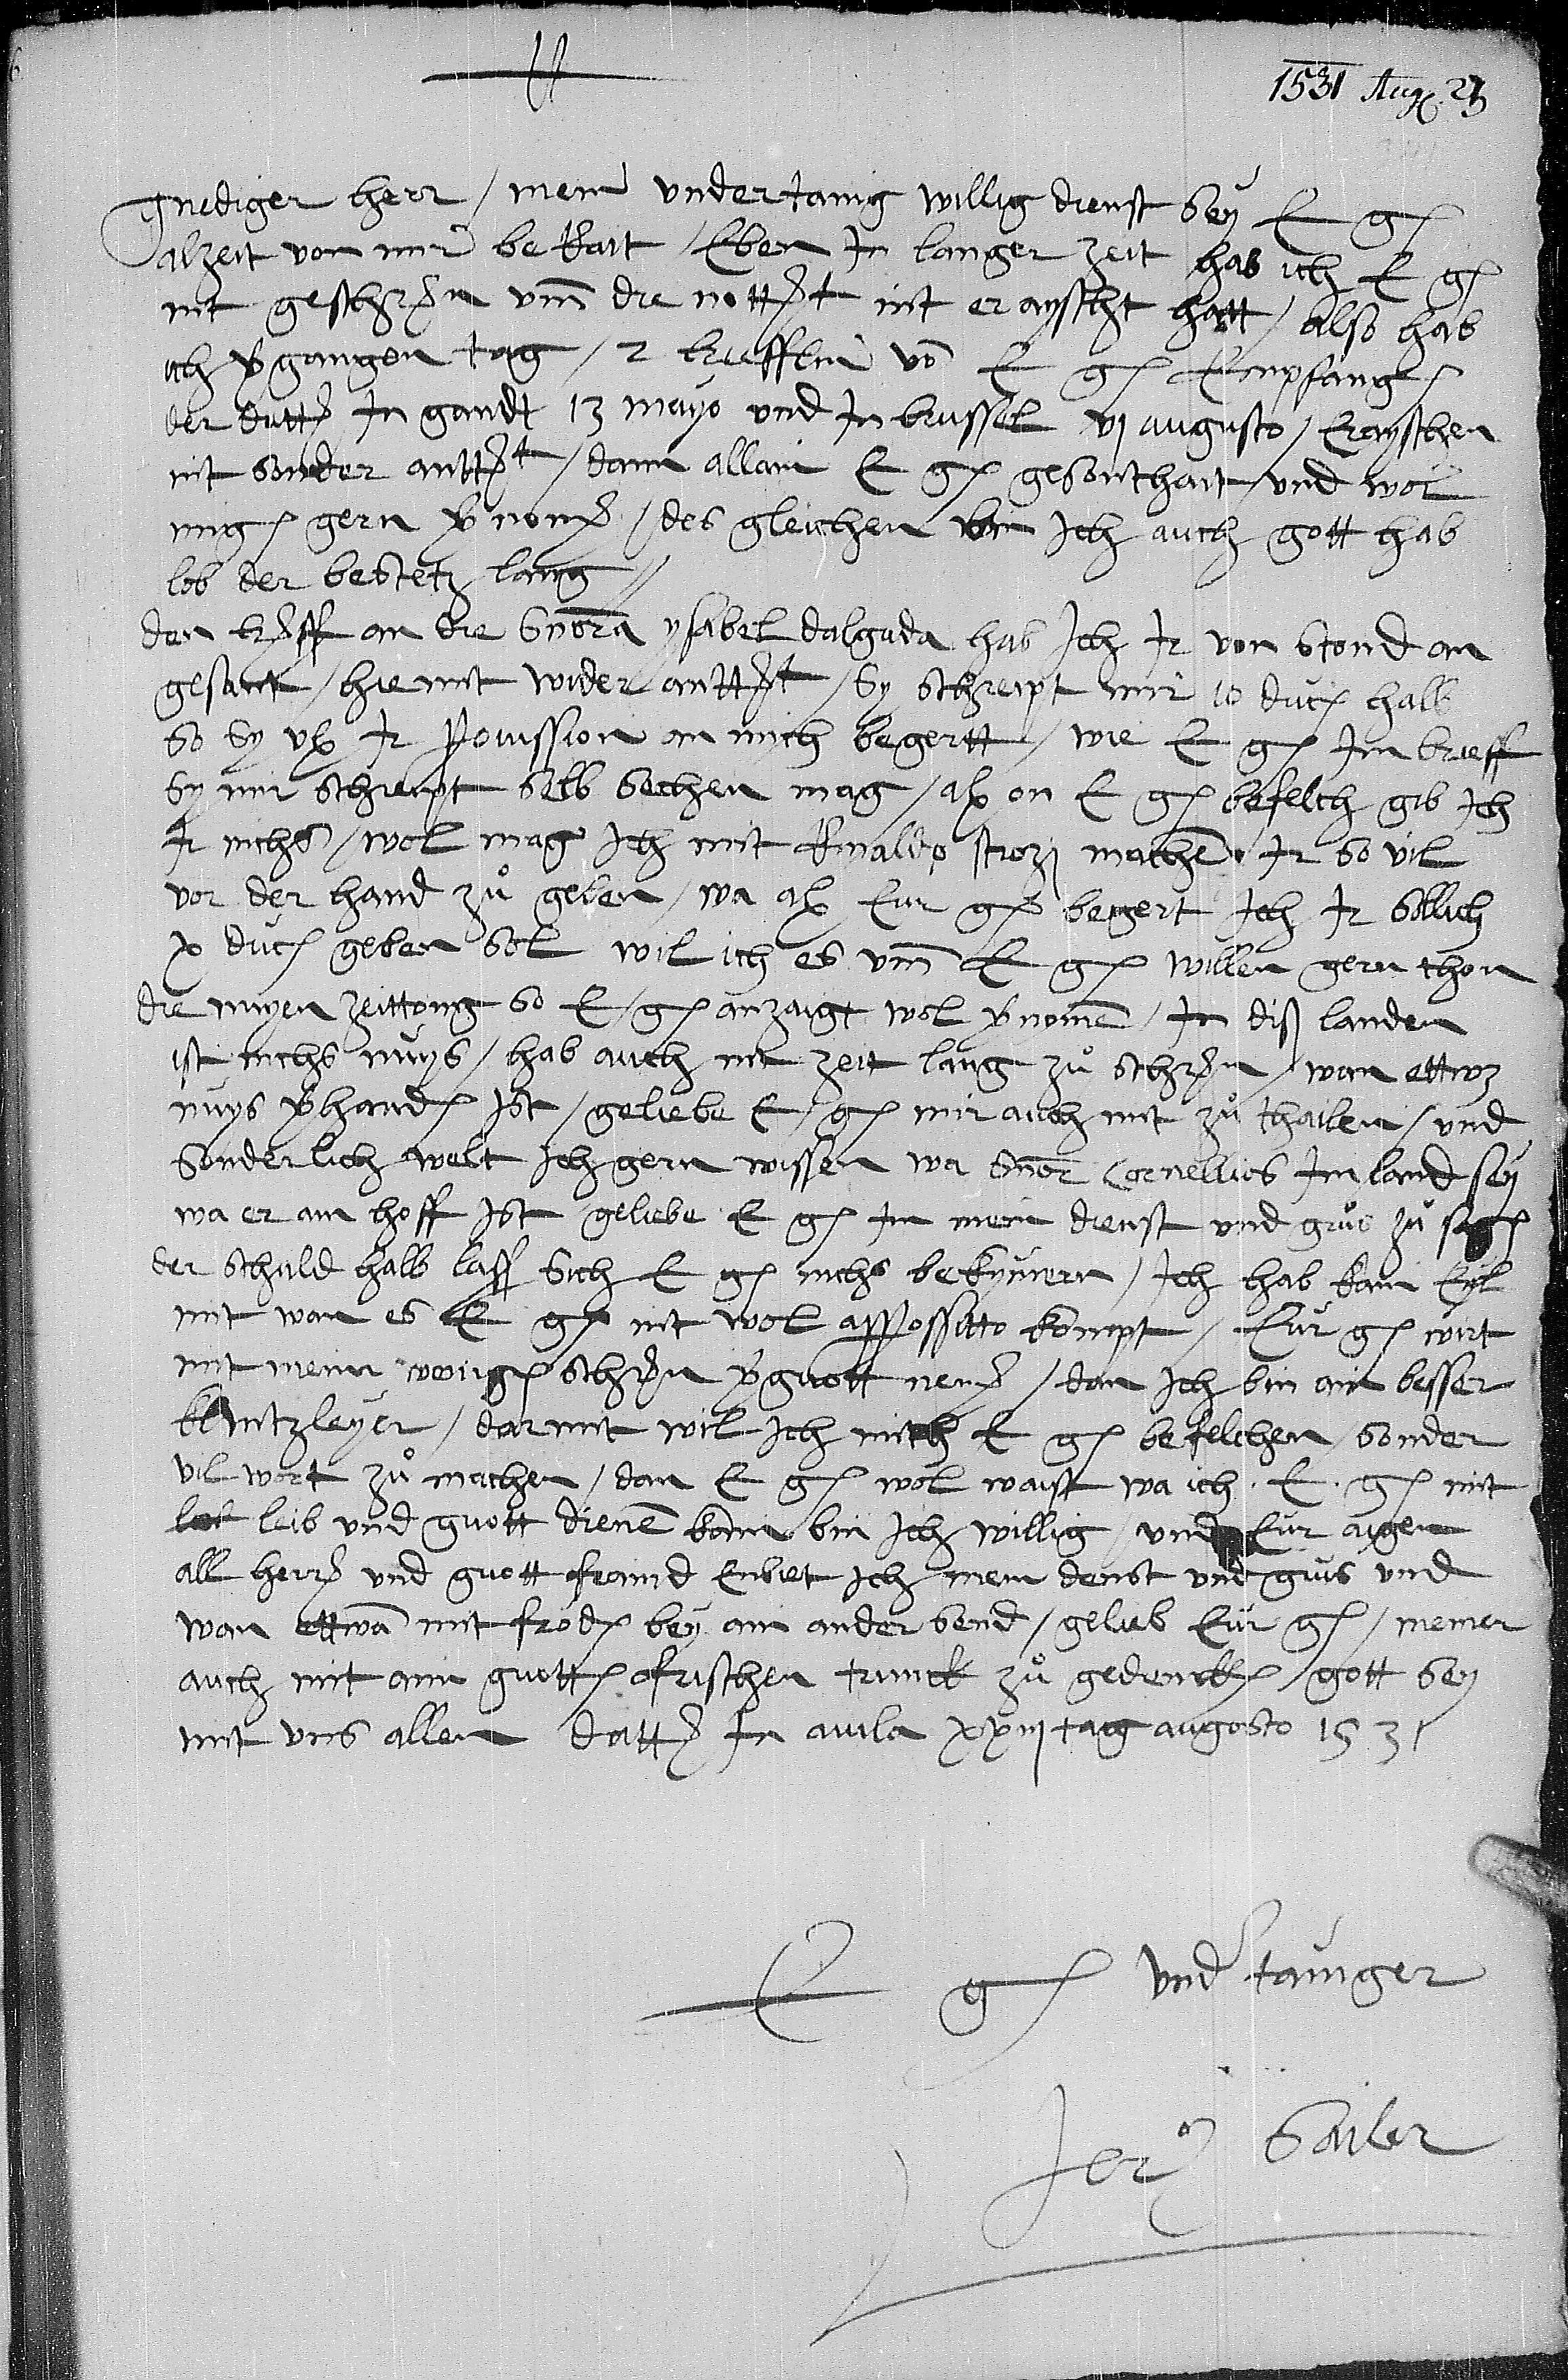 1531 Aug. 23
Gnediger herr / mein undertanig willig dienst sey E g
alzeit von mir bekait / Eben In langer zeit hab ich E g
nit geschrn umm die nottt nit erayscht hatt / also hab
ich vgangen tag / 2 briefflin vō E g Empfang
der datt In gandt 13 mayo und In brussel vj augusto / Erayschen
nit sonder anttt / dann allain E g gesonthait und wol
mug gern vnom / des gleichen bin Ich auch gott hab
lob der bestetz lang //
den brff an die Snora ysabel dalgada hab Ich Ir von stond an
gesant / hie mit wider anttt / sy schreipt mir 10 duc halb
so sy uß Ir Provission an mich begertt / wie E g Im brieff
sy mir schreipt selb sechen mag / als on E g befelch gib Ich
Ir nichs / wol mag Ich mit Rinaldo strozi machē Ir so vil
vor der hand zů geben / wa als Eur g begert Ich Ir sollich
x duc geben sol wil ich es umm E g willen gern thon
die nuyen zeittong so E / g anzaigt wol vnomē / In diß landen
ist nichs nuys / hab auch nit zeit lang zů schrn / wan ettwz
nuys vhand Ist / geliebe E / g mir auch mit zů thailen / und
sonderlich welt Ich gern wissen wa Snor Cornellios Im land sey
wa er am hoff Ist / geliebe E g Im mein dienst und grůs zů sag
der schuld halb lass sich E g nichs bekymern / Ich hab kain Eyl
mit wan es E g nit wol appossitto kompt / Eur g wirt
mit meim wenig schrn vguott nem / dan Ich bin ain besser
kantzleyer / darmit wil Ich mich E g befelchen / sonder
vil wort zů machen / dan E g wol waist wa ich . E . g mit
leib und guott dienē kan bin Ich willig / und Eur aigen
all herr und guott fraind Enbiet Ich mein denst und grus und
wan ettwā mit fröd bey ain ander send / gelieb Eur g / meiner
auch mit aim guott frischen trunck zů gedenck / gott sey
mit uns allen datt In avila xxiij tag augosto 1531
E g undtaniger
Jero Sailer